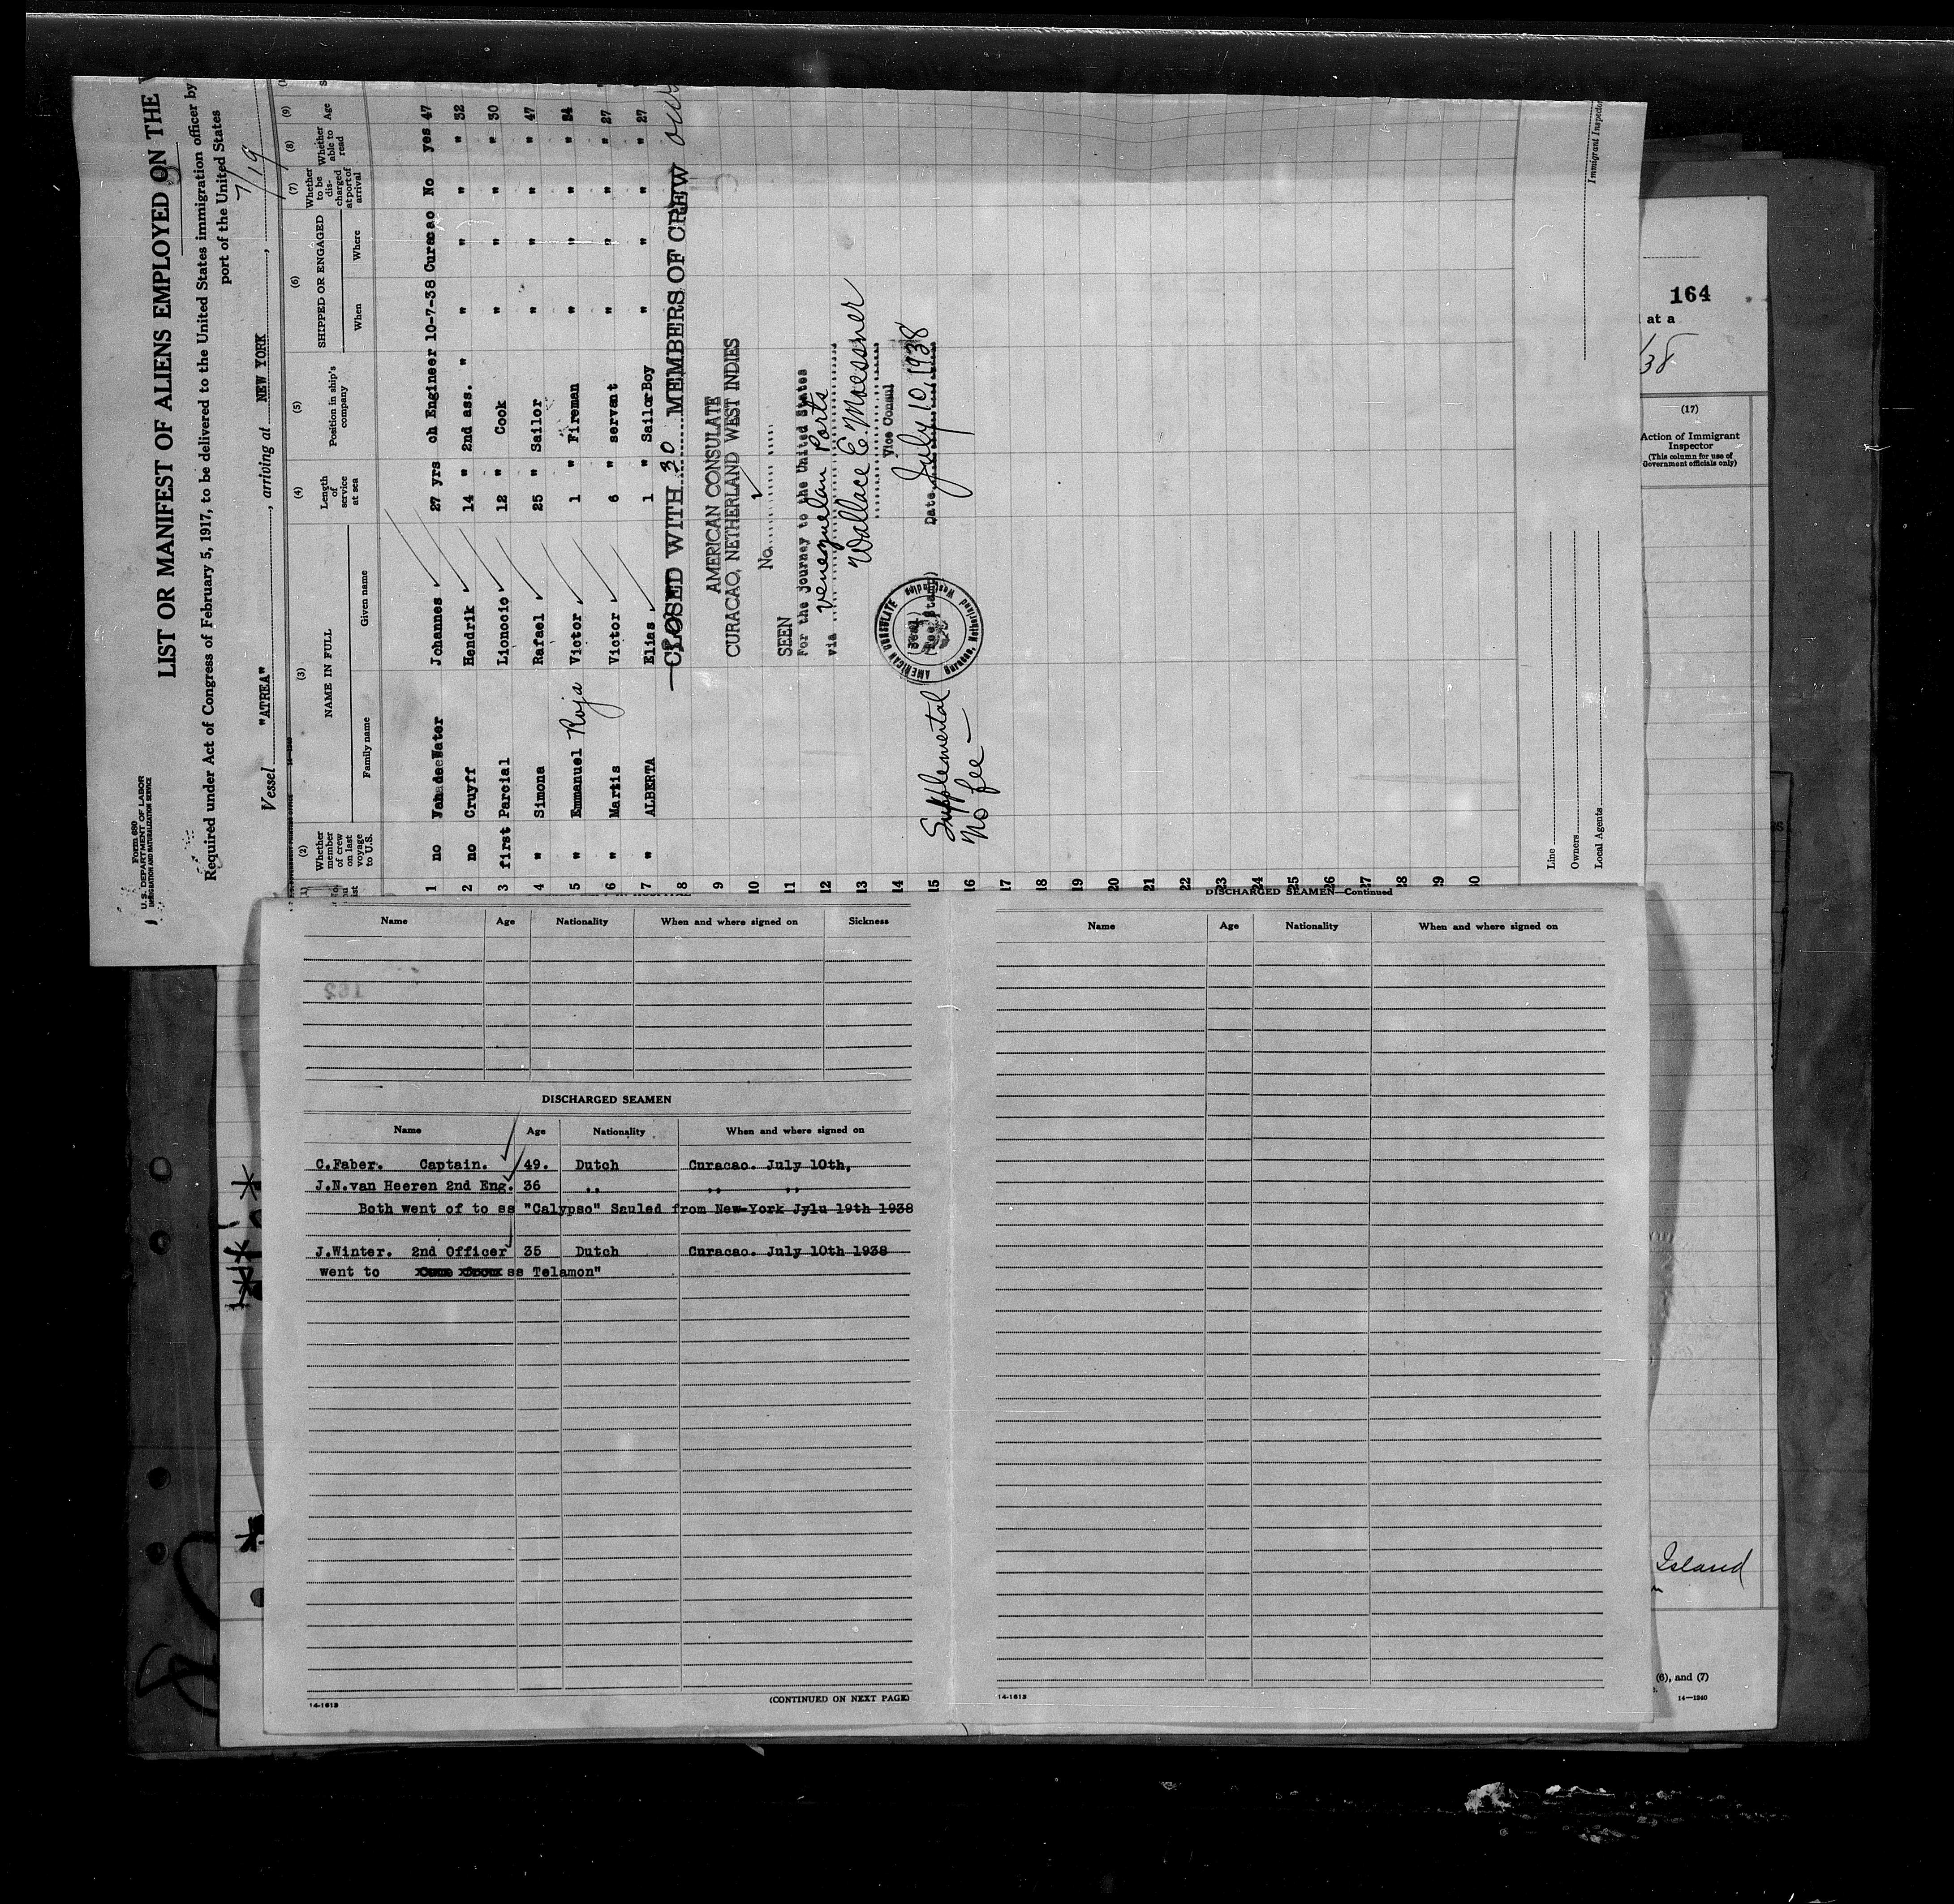 Form 680
U. S. DEPARTMENT OF LABOR
IMMIGRATION AND NATURALIZATION SERVICE
LIST OR MANIFEST OF ALIENS EMPLOYED ON THE
Required under Act of Congress of February 5, 1917, to be delivered to the United States immigration officer by
port of the United States
Vessel "ATREA", arriving at NEW YORK, 7/19
(2) (3) (4) (5) (6) (7) (8) (9)
Whether member of crew on last voyage to U.S. NAME IN FULL Family name Given name Length of service at sea Position in ship's company SHIPPED OR ENGAGED When Where Whether to be discharged at port of arrival Whether able to read Age
1 no Johannes 27 yrs ch Engineer 10-7-38 Curacao No yes 47
2 no Cruyff Hendrik 14 " 2nd ass. " " " " " 32
3 first Parcial Lionocio 12 " Cook " " " " 30
4 " Simona Rafael 25 " Sailor " " " " 47
5 " Emmanuel Roja Victor 1 " Fireman " " " " 24
6 " Martis Victor 6 " servant " " " " 27
7 " ALBERTA Elias 1 " Sailor-Boy " " " " 27
8 CLOSED WITH 30 MEMBERS OF CREW
9 AMERICAN CONSULATE
CURACAO, NETHERLAND WEST INDIES
10 No.
11 SEEN
For the journey to the United States
12 via Venezuelan Ports
13 Wallace E. Moessner
14 Vice Consul
15 Date July 10, 1938
AMERICAN CONSULATE
Curacao, Netherland West Indies
Supplemental
16 No fee —
17
18
19
20
21
22
23
24
25
26
27
28
29
30
Line
Owners
Local Agents
Immigrant Inspector
164
at a
/38
(17)
Action of Immigrant
Inspector
(This column for use of
Government officials only)
Island
(6), and (7)
14—1240
Name Age Nationality When and where signed on Sickness
163
DISCHARGED SEAMEN
Name Age Nationality When and where signed on
C.Faber. Captain. 49. Dutch Curacao. July 10th,
J.N.van Heeren 2nd Eng. 36 ,, ,, ,,
Both went of to ss "Calypso" Sauled from New-York Jylu 19th 1938
J.Winter. 2nd Officer 35 Dutch Curacao. July 10th 1938
went to ss Telamon"
14-1613
(CONTINUED ON NEXT PAGE)
DISCHARGED SEAMEN—Continued
Name Age Nationality When and where signed on
14-1613